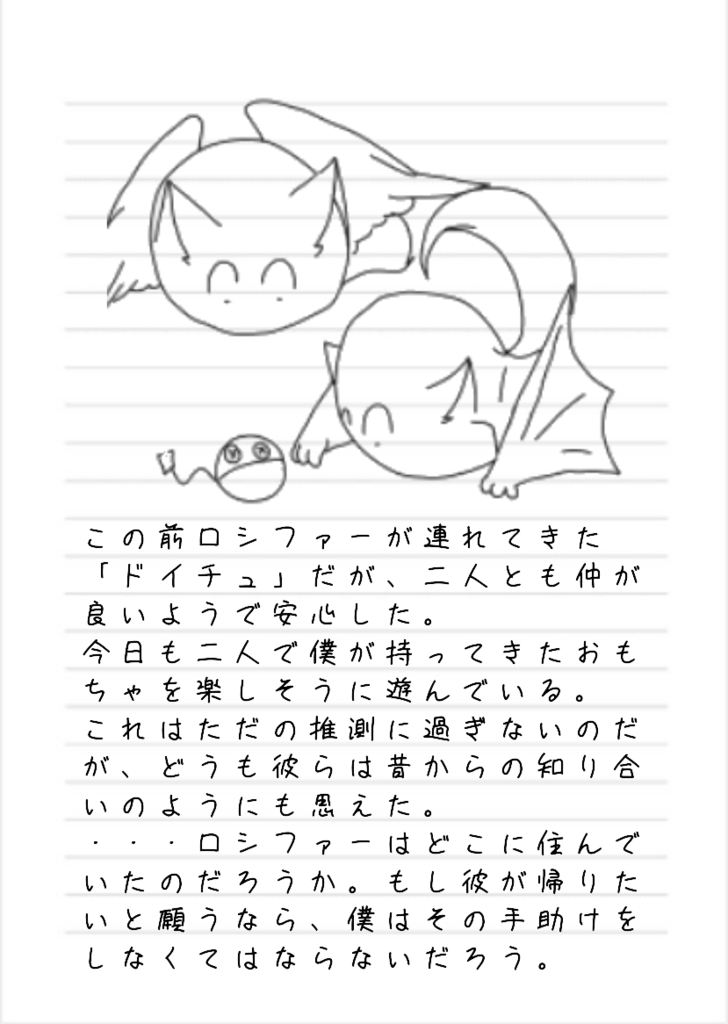 この前ロシファーが連れてきた
「ドイチュ」だが、二人とも仲が
良いようで安心した。
今日も二人で僕が持ってきたおも
ちゃを楽しそうに遊んでいる。
これはただの推測に過ぎないのだ
が、どうも彼らは昔からの知り合
いのようにも思えた。
・・・ロシファーはどこに住んで
いたのだろうか。もし彼が帰りた
いと願うなら、僕はその手助けを
しなくてはならないだろう。